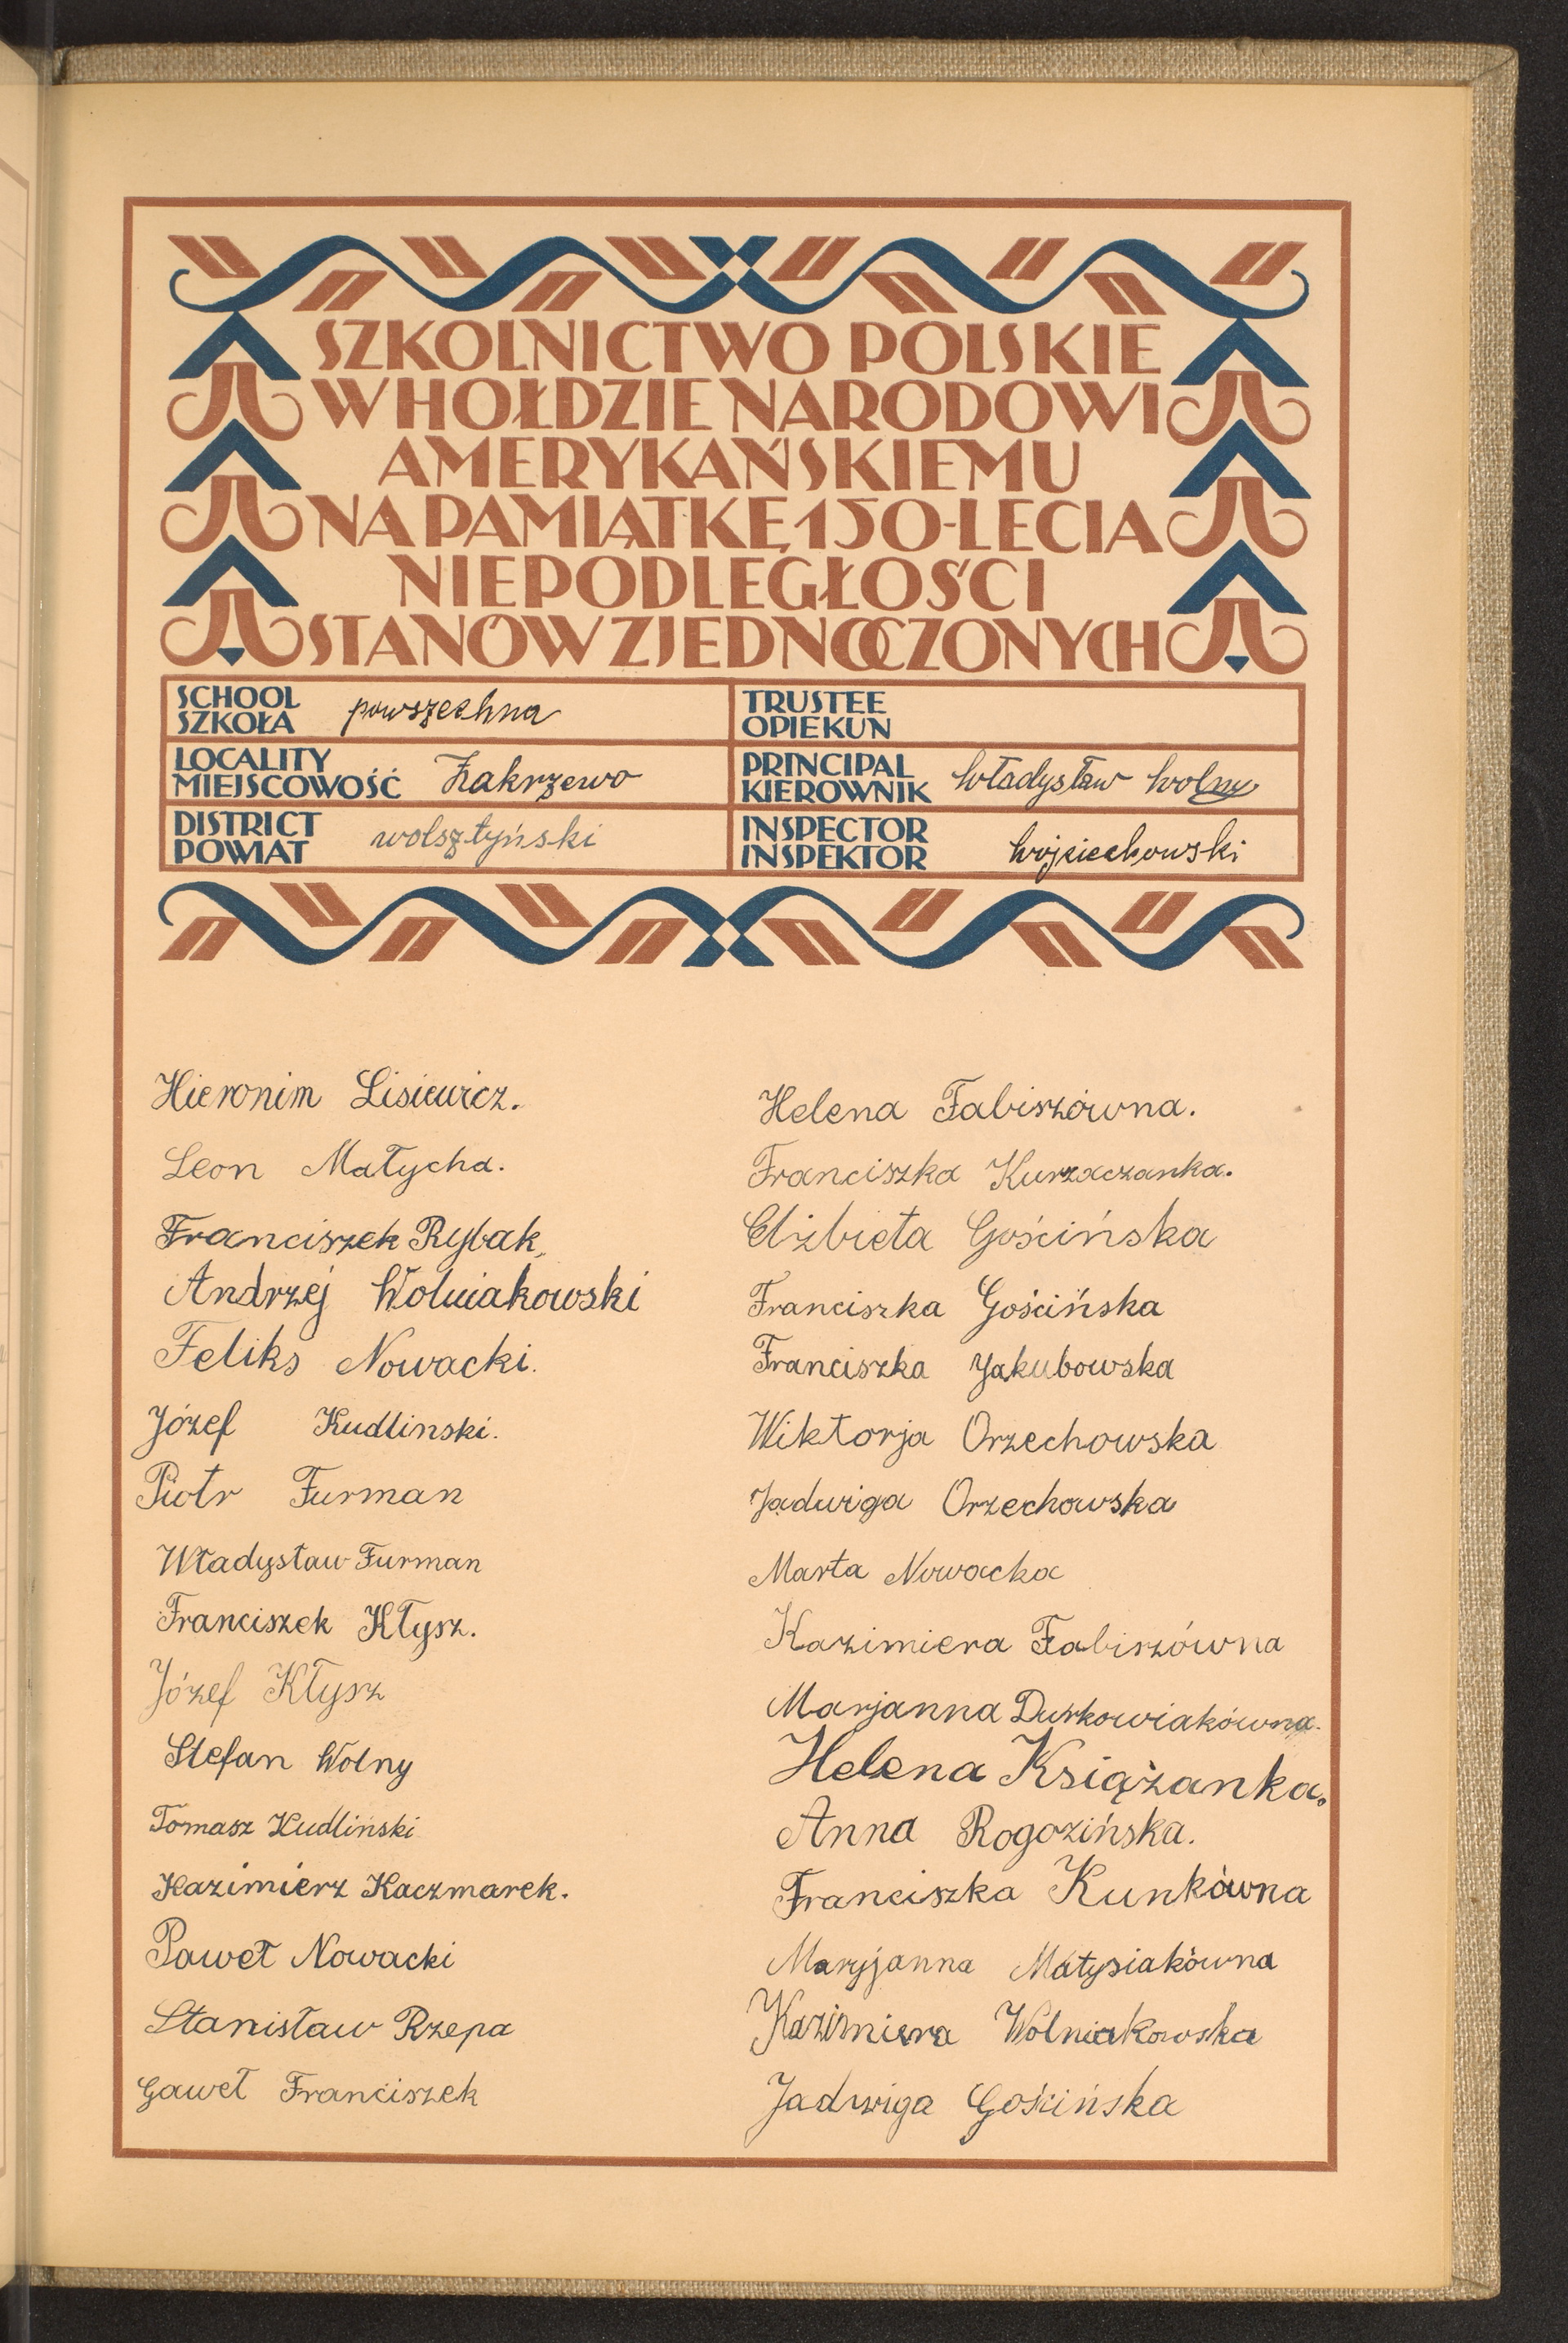 SZKOLNICTWO POLSKIE
W HOŁDZIE NARODOWI
AMERYKAŃSKIEMU
NA PAMIĄTKĘ 150-LECIA
NIEPODLEGŁOŚCI
STANÓW ZJEDNOCZONYCH
SCHOOL
SZKOŁA powszechna
TRUSTEE
OPIEKUN
LOCALITY
MIEJSCOWOŚĆ Zakrzewo
PRINCIPAL
KIEROWNIK Władysław Wolny
DISTRICT
POWIAT wolsztyński
INSPECTOR
INSPEKTOR Wojciechowski
Hieronim Lisiewicz.
Leon Małycha.
Franciszek Rybak
Andrzej Wolniakowski
Feliks Nowacki.
Józef Kudlinski.
Piotr Furman
Władysław Furman
Franciszek Kłysz.
Józef Kłysz
Stefan Wolny
Tomasz Kudliński
Kazimierz Kaczmarek.
Paweł Nowacki
Stanisław Rzepa
Gaweł Franciszek
Helena Fabiszówna.
Franciszka Kurzaczanka.
Elżbieta Gościńska
Franciszka Gościńska
Franciszka Jakubowska
Wiktorja Orzechowska
Jadwiga Orzechowska
Marta Nowacka
Kazimiera Fabiszówna
Marjanna Durkowiakówna.
Helena Książanka.
Anna Rogozińska.
Franciszka Kunkówna
Maryjanna Matysiakówna
Kazimiera Wolniakowska
Jadwiga Gościńska